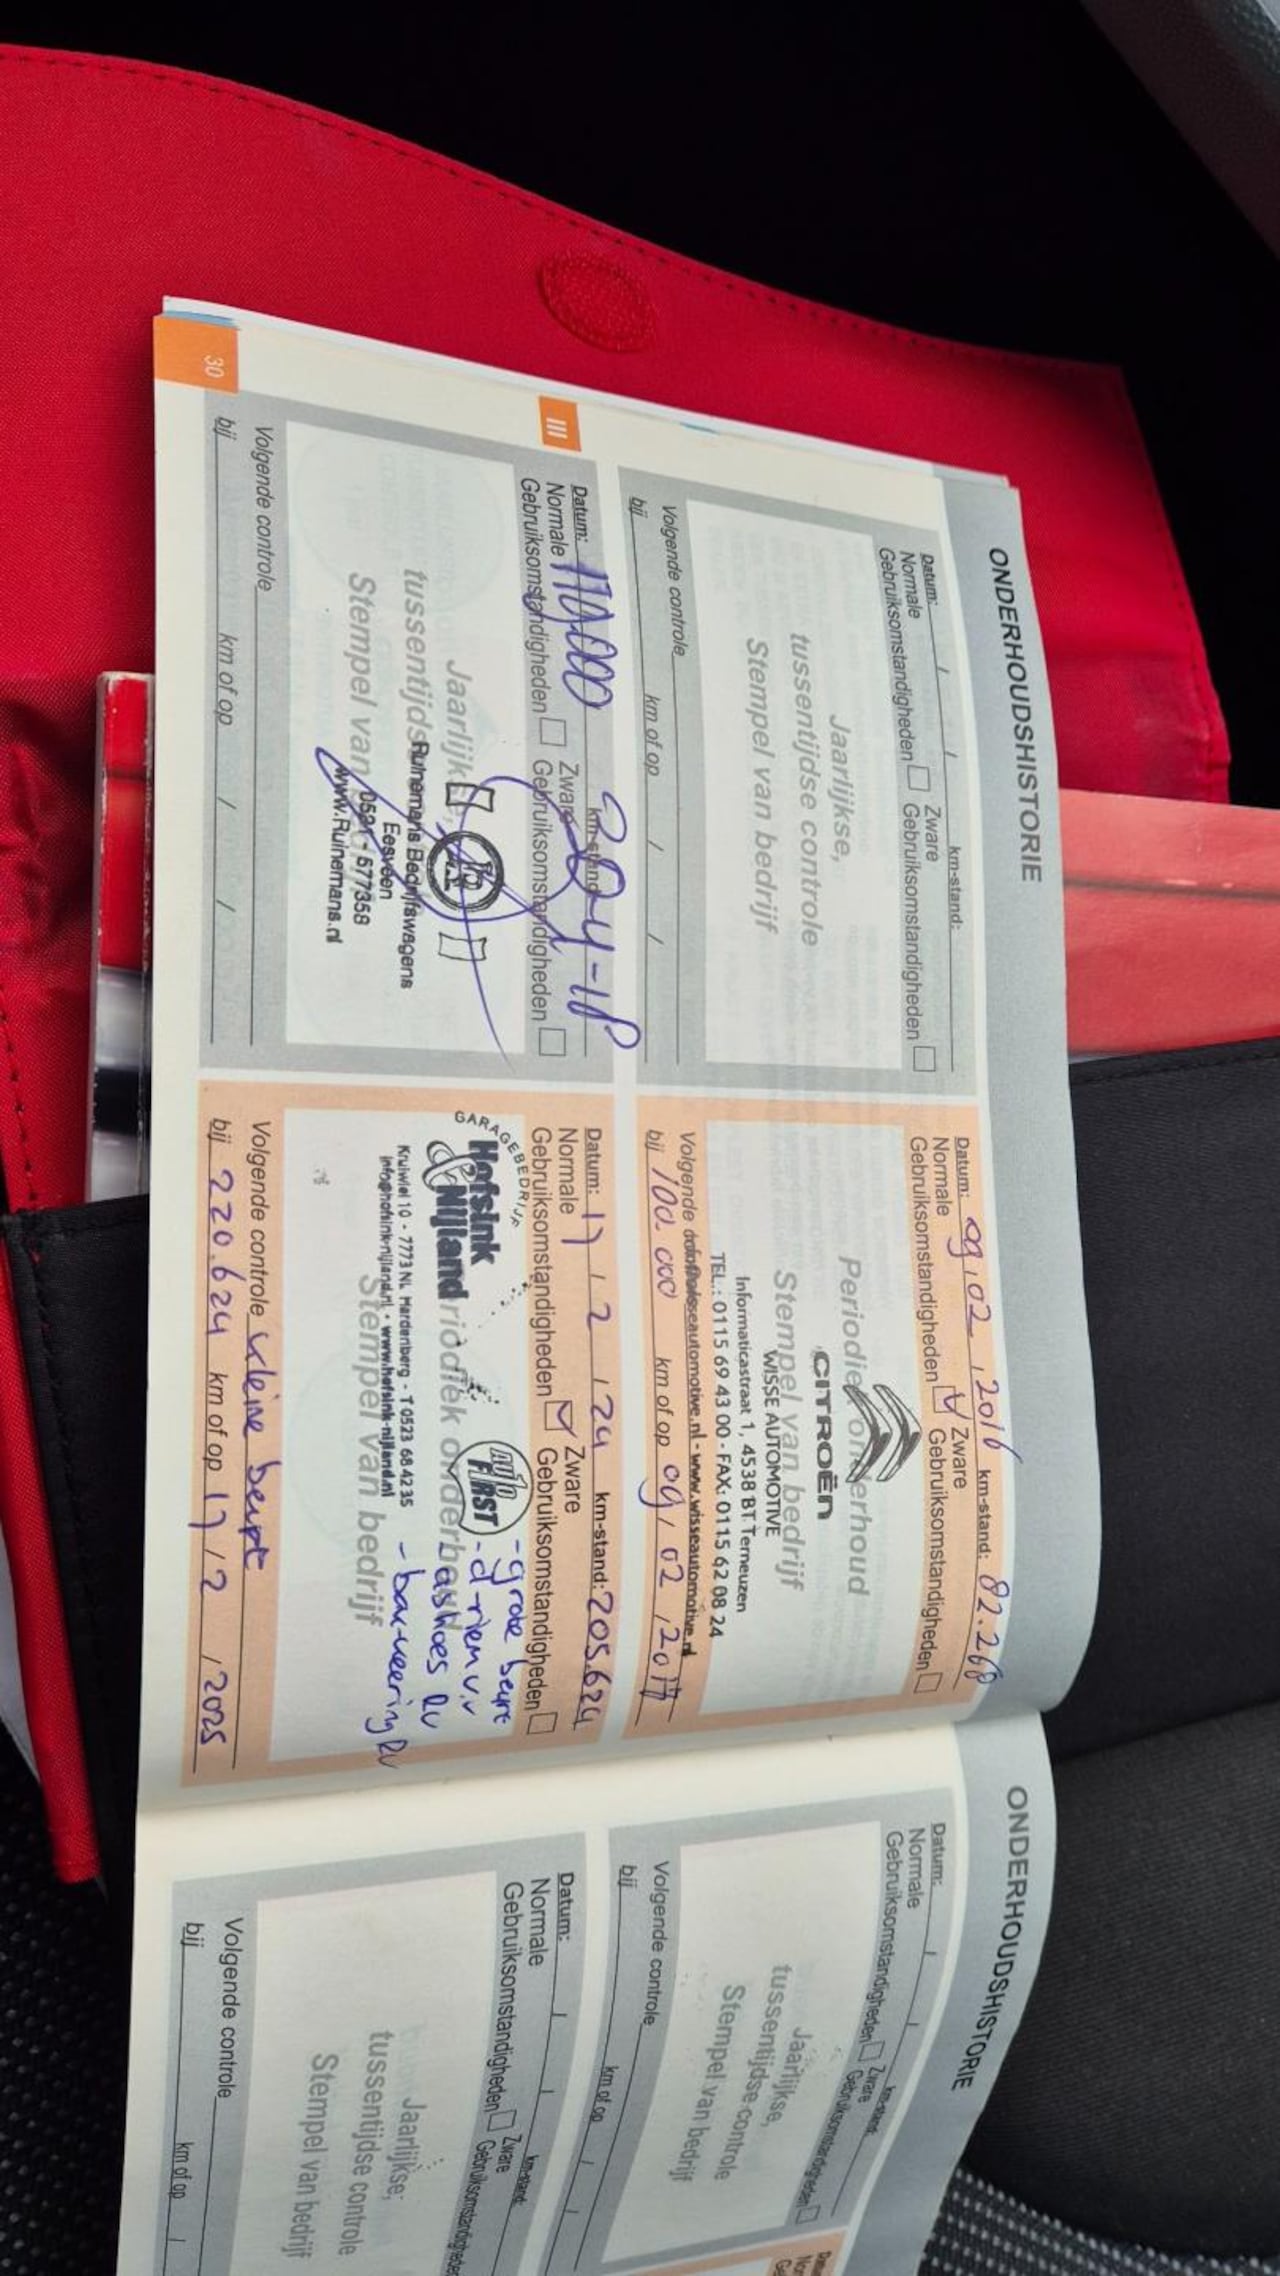 ONDERHOUDSHISTORIE
Datum: / / km-stand:
Normale Zware
Gebruiksomstandigheden Gebruiksomstandigheden
Jaarlijkse,
tussentijdse controle
Stempel van bedrijf
Volgende controle
bij km of op / /
Datum: 09 / 02 / 2016 km-stand: 82.268
Normale Zware
Gebruiksomstandigheden Gebruiksomstandigheden
Periodiek onderhoud
CITROËN
Stempel van bedrijf
WISSE AUTOMOTIVE
Informaticastraat 1, 4538 BT Terneuzen
TEL.: 0115 69 43 00 - FAX: 0115 62 08 24
www.wisseautomotive.nl
Volgende controle
bij 100.000 km of op 09 / 02 / 2017
III
Datum: 119,000 km-stand: 30-4-18
Normale Zware
Gebruiksomstandigheden Gebruiksomstandigheden
Jaarlijkse,
tussentijdse
Ruinemans Bedrijfswagens
Stempel van
Eesveen
0521 - 577358
www.Ruinemans.nl
Volgende controle
bij km of op / /
30
Datum: 17 / 2 / 24 km-stand: 205.624
Normale Zware
Gebruiksomstandigheden Gebruiksomstandigheden
GARAGEBEDRIJF
Hofsink
& Nijland
AUTO
FIRST
Periodiek onderhoud
Kruiwiel 10 - 7773 NL Hardenberg - T 0523 68 42 35
info@hofsink-nijland.nl - www.hofsink-nijland.nl
Stempel van bedrijf
- grote beurt
- d-riem v.v
- askoes RV
Volgende controle kleine beurt
bij 220.624 km of op 17 / 2 / 2025
ONDERHOUDSHISTORIE
Datum: / / km-stand:
Normale Zware
Gebruiksomstandigheden Gebruiksomstandigheden
Jaarlijkse,
tussentijdse controle
Stempel van bedrijf
Volgende controle
bij km of op / /
Datum: / / km-stand:
Normale Zware
Gebruiksomstandigheden Gebruiksomstandigheden
Jaarlijkse,
tussentijdse controle
Stempel van bedrijf
Volgende controle
bij km of op /